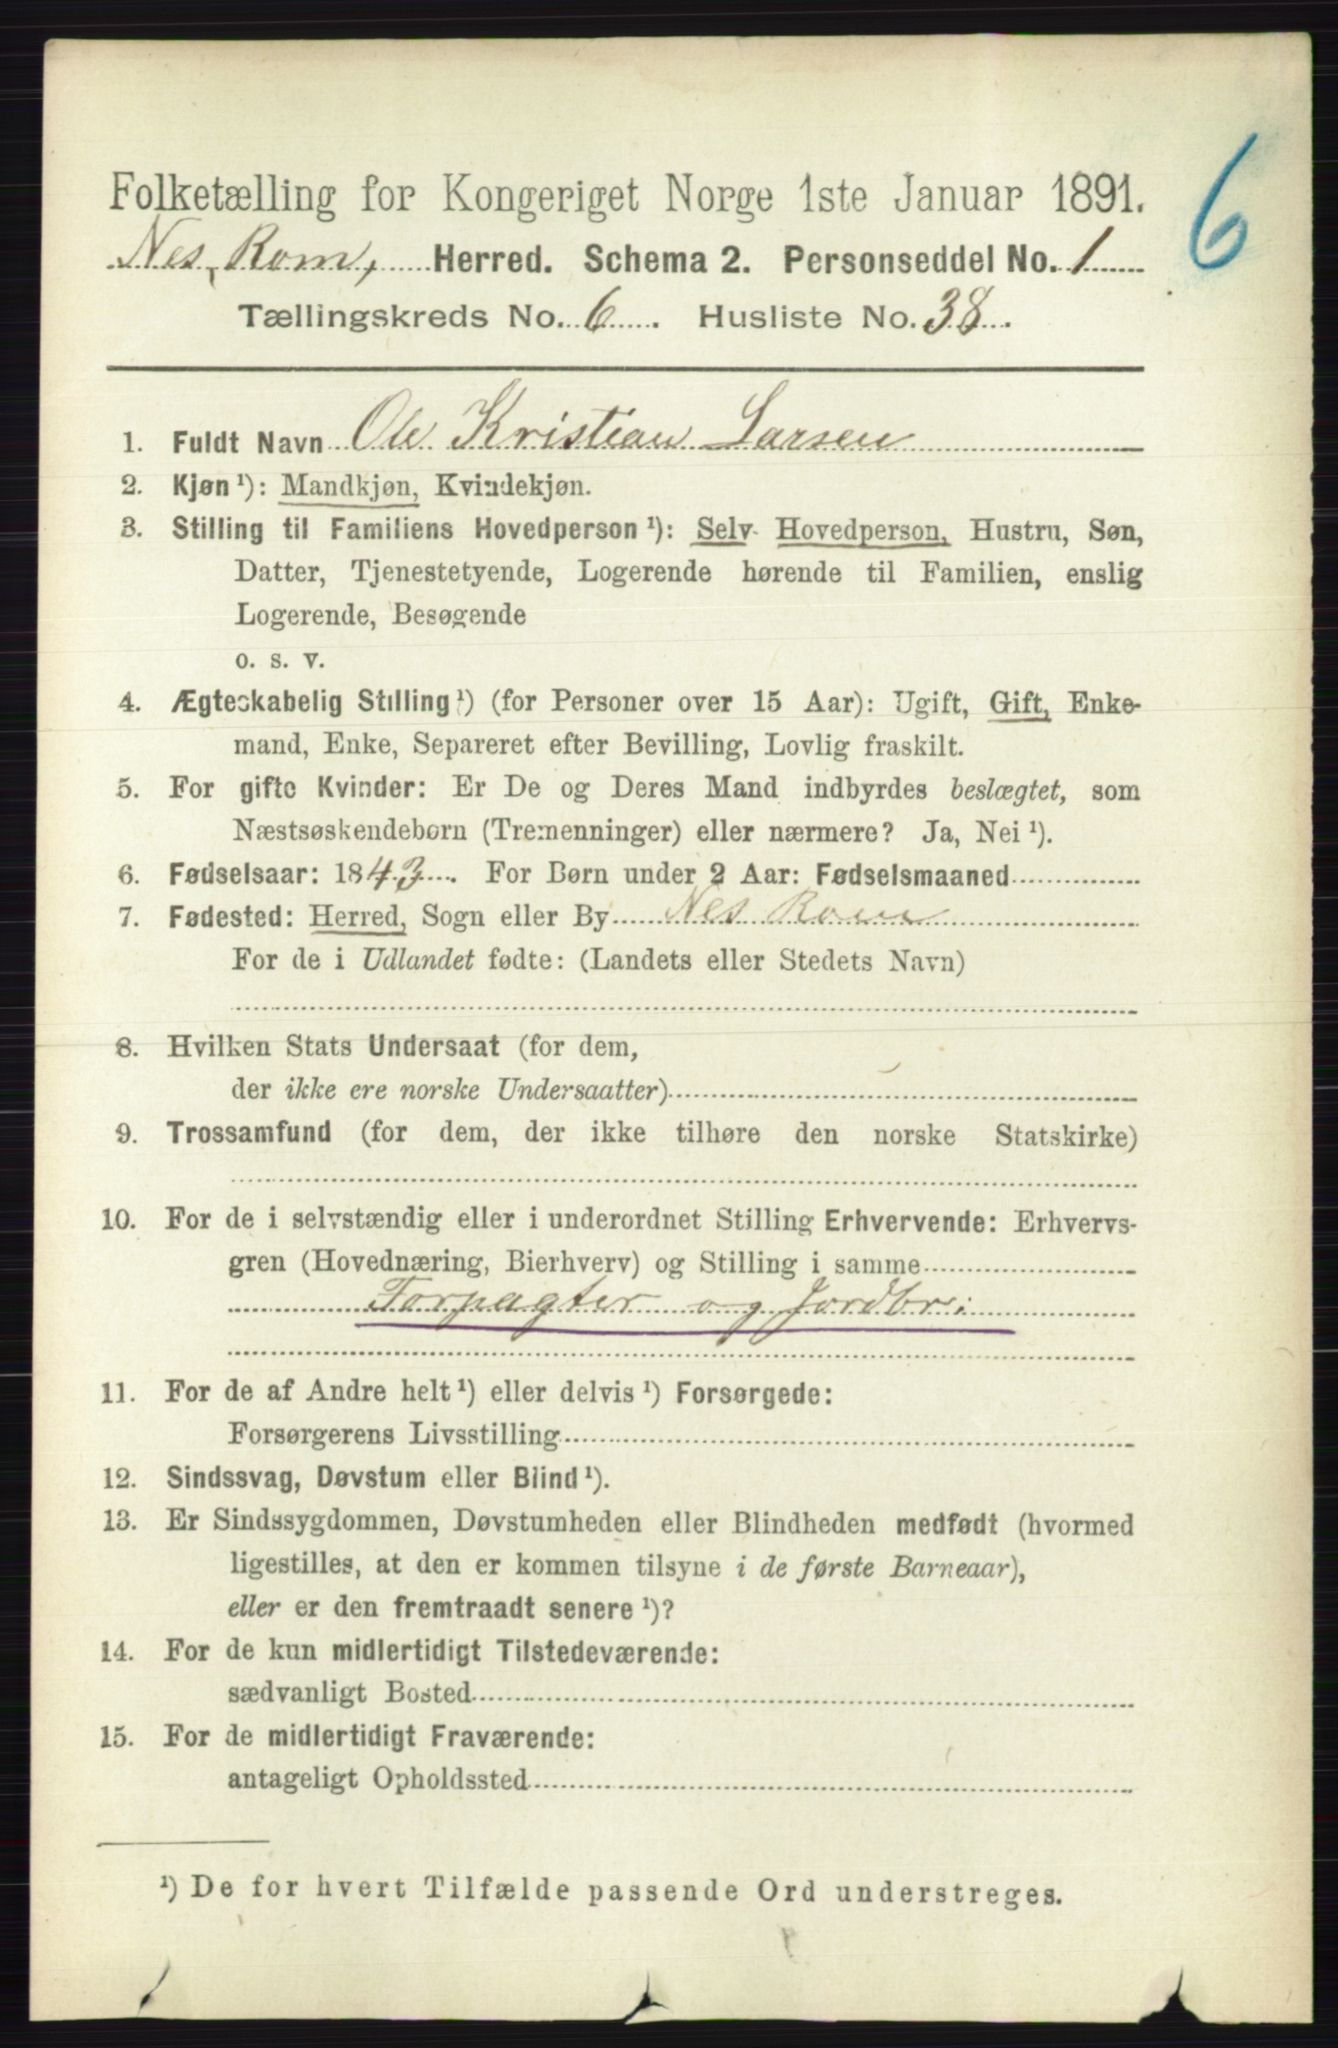 6
Folketælling for Kongeriget Norge 1ste Januar 1891.
Nes, Rom, Herred. Schema 2. Personseddel No. 1
Tællingskreds No. 6 Husliste No. 38
1. Fuldt Navn Ole Kristian Larsen
2. Kjøn ¹): Mandkjøn, Kvindekjøn.
3. Stilling til Familiens Hovedperson ¹): Selv Hovedperson, Hustru, Søn,
Datter, Tjenestetyende, Logerende hørende til Familien, enslig
Logerende, Besøgende
o. s. v.
4. Ægteskabelig Stilling ¹) (for Personer over 15 Aar): Ugift, Gift, Enke-
mand, Enke, Separeret efter Bevilling, Lovlig fraskilt.
5. For gifte Kvinder: Er De og Deres Mand indbyrdes beslægtet, som
Næstsøskendebørn (Tremenninger) eller nærmere? Ja, Nei ¹).
6. Fødselsaar: 1843. For Børn under 2 Aar: Fødselsmaaned
7. Fødested: Herred, Sogn eller By Nes Rom
For de i Udlandet fødte: (Landets eller Stedets Navn)
8. Hvilken Stats Undersaat (for dem,
der ikke ere norske Undersaatter)
9. Trossamfund (for dem, der ikke tilhøre den norske Statskirke)
10. For de i selvstændig eller i underordnet Stilling Erhvervende: Erhvervs-
gren (Hovednæring, Bierhverv) og Stilling i samme
Forpagter og Jordbr:
11. For de af Andre helt ¹) eller delvis ¹) Forsørgede:
Forsørgerens Livsstilling
12. Sindssvag, Døvstum eller Blind ¹).
13. Er Sindssygdommen, Døvstumheden eller Blindheden medfødt (hvormed
ligestilles, at den er kommen tilsyne i de første Barneaar),
eller er den fremtraadt senere ¹)?
14. For de kun midlertidigt Tilstedeværende:
sædvanligt Bosted
15. For de midlertidigt Fraværende:
antageligt Opholdssted
¹) De for hvert Tilfælde passende Ord understreges.